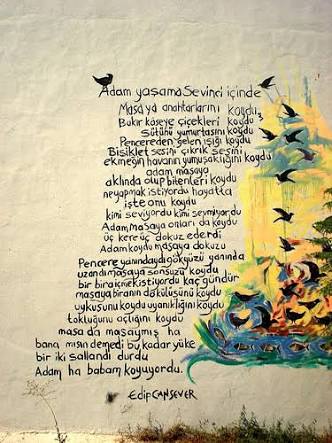 Adam yaşama Sevinci içinde
Masaya anahtarlarını koydu
Bakır kaseye çiçekleri koydu
Sütünü yumurtasını koydu
Pencereden gelen ışığı koydu
Bisiklet sesini çıkrık sesini
ekmeğin havanın yumuşaklığını koydu
adam masaya
aklında olup bitenleri koydu
ne yapmak istiyordu hayatta
işte onu koydu
kimi seviyordu kimi sevmiyordu
Adam masaya onları da koydu
üç kere üç dokuz ederdi
Adam koydu masaya dokuzu
Pencere yanındaydı gökyüzü yanında
uzandı masaya sonsuzu koydu
bir bira içmek istiyordu kaç gündür
masaya biranın dökülüşünü koydu
uykusunu koydu uyanıklığını koydu
tokluğunu açlığını koydu
masa da masaymış ha
bana mısın demedi bu kadar yüke
bir iki sallandı durdu
Adam ha babam koyuyordu.
Edip CANSEVER